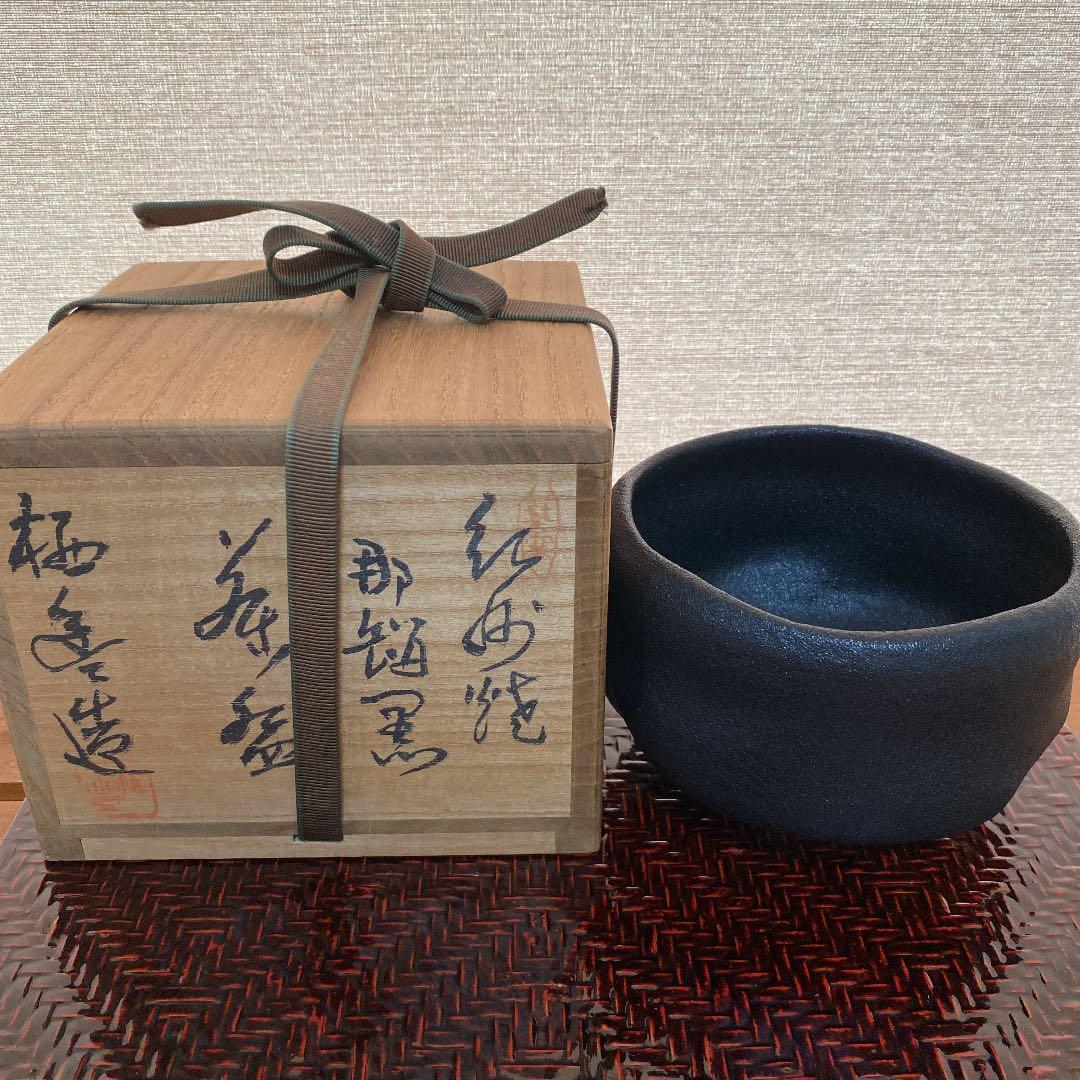 紀州焼
那智黒
茶盌
栖豊造